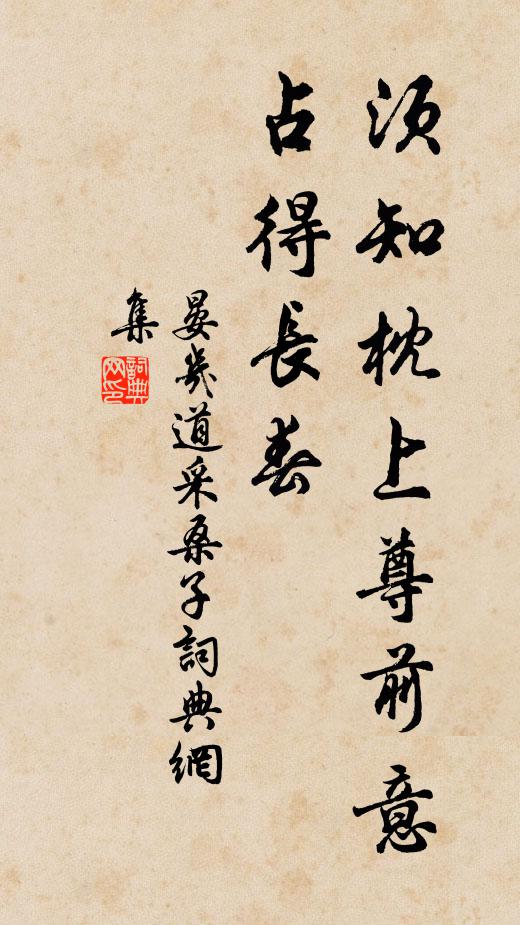 須知枕上尊前意
占得長春
晏幾道采桑子詞典網
集
詞典
网印